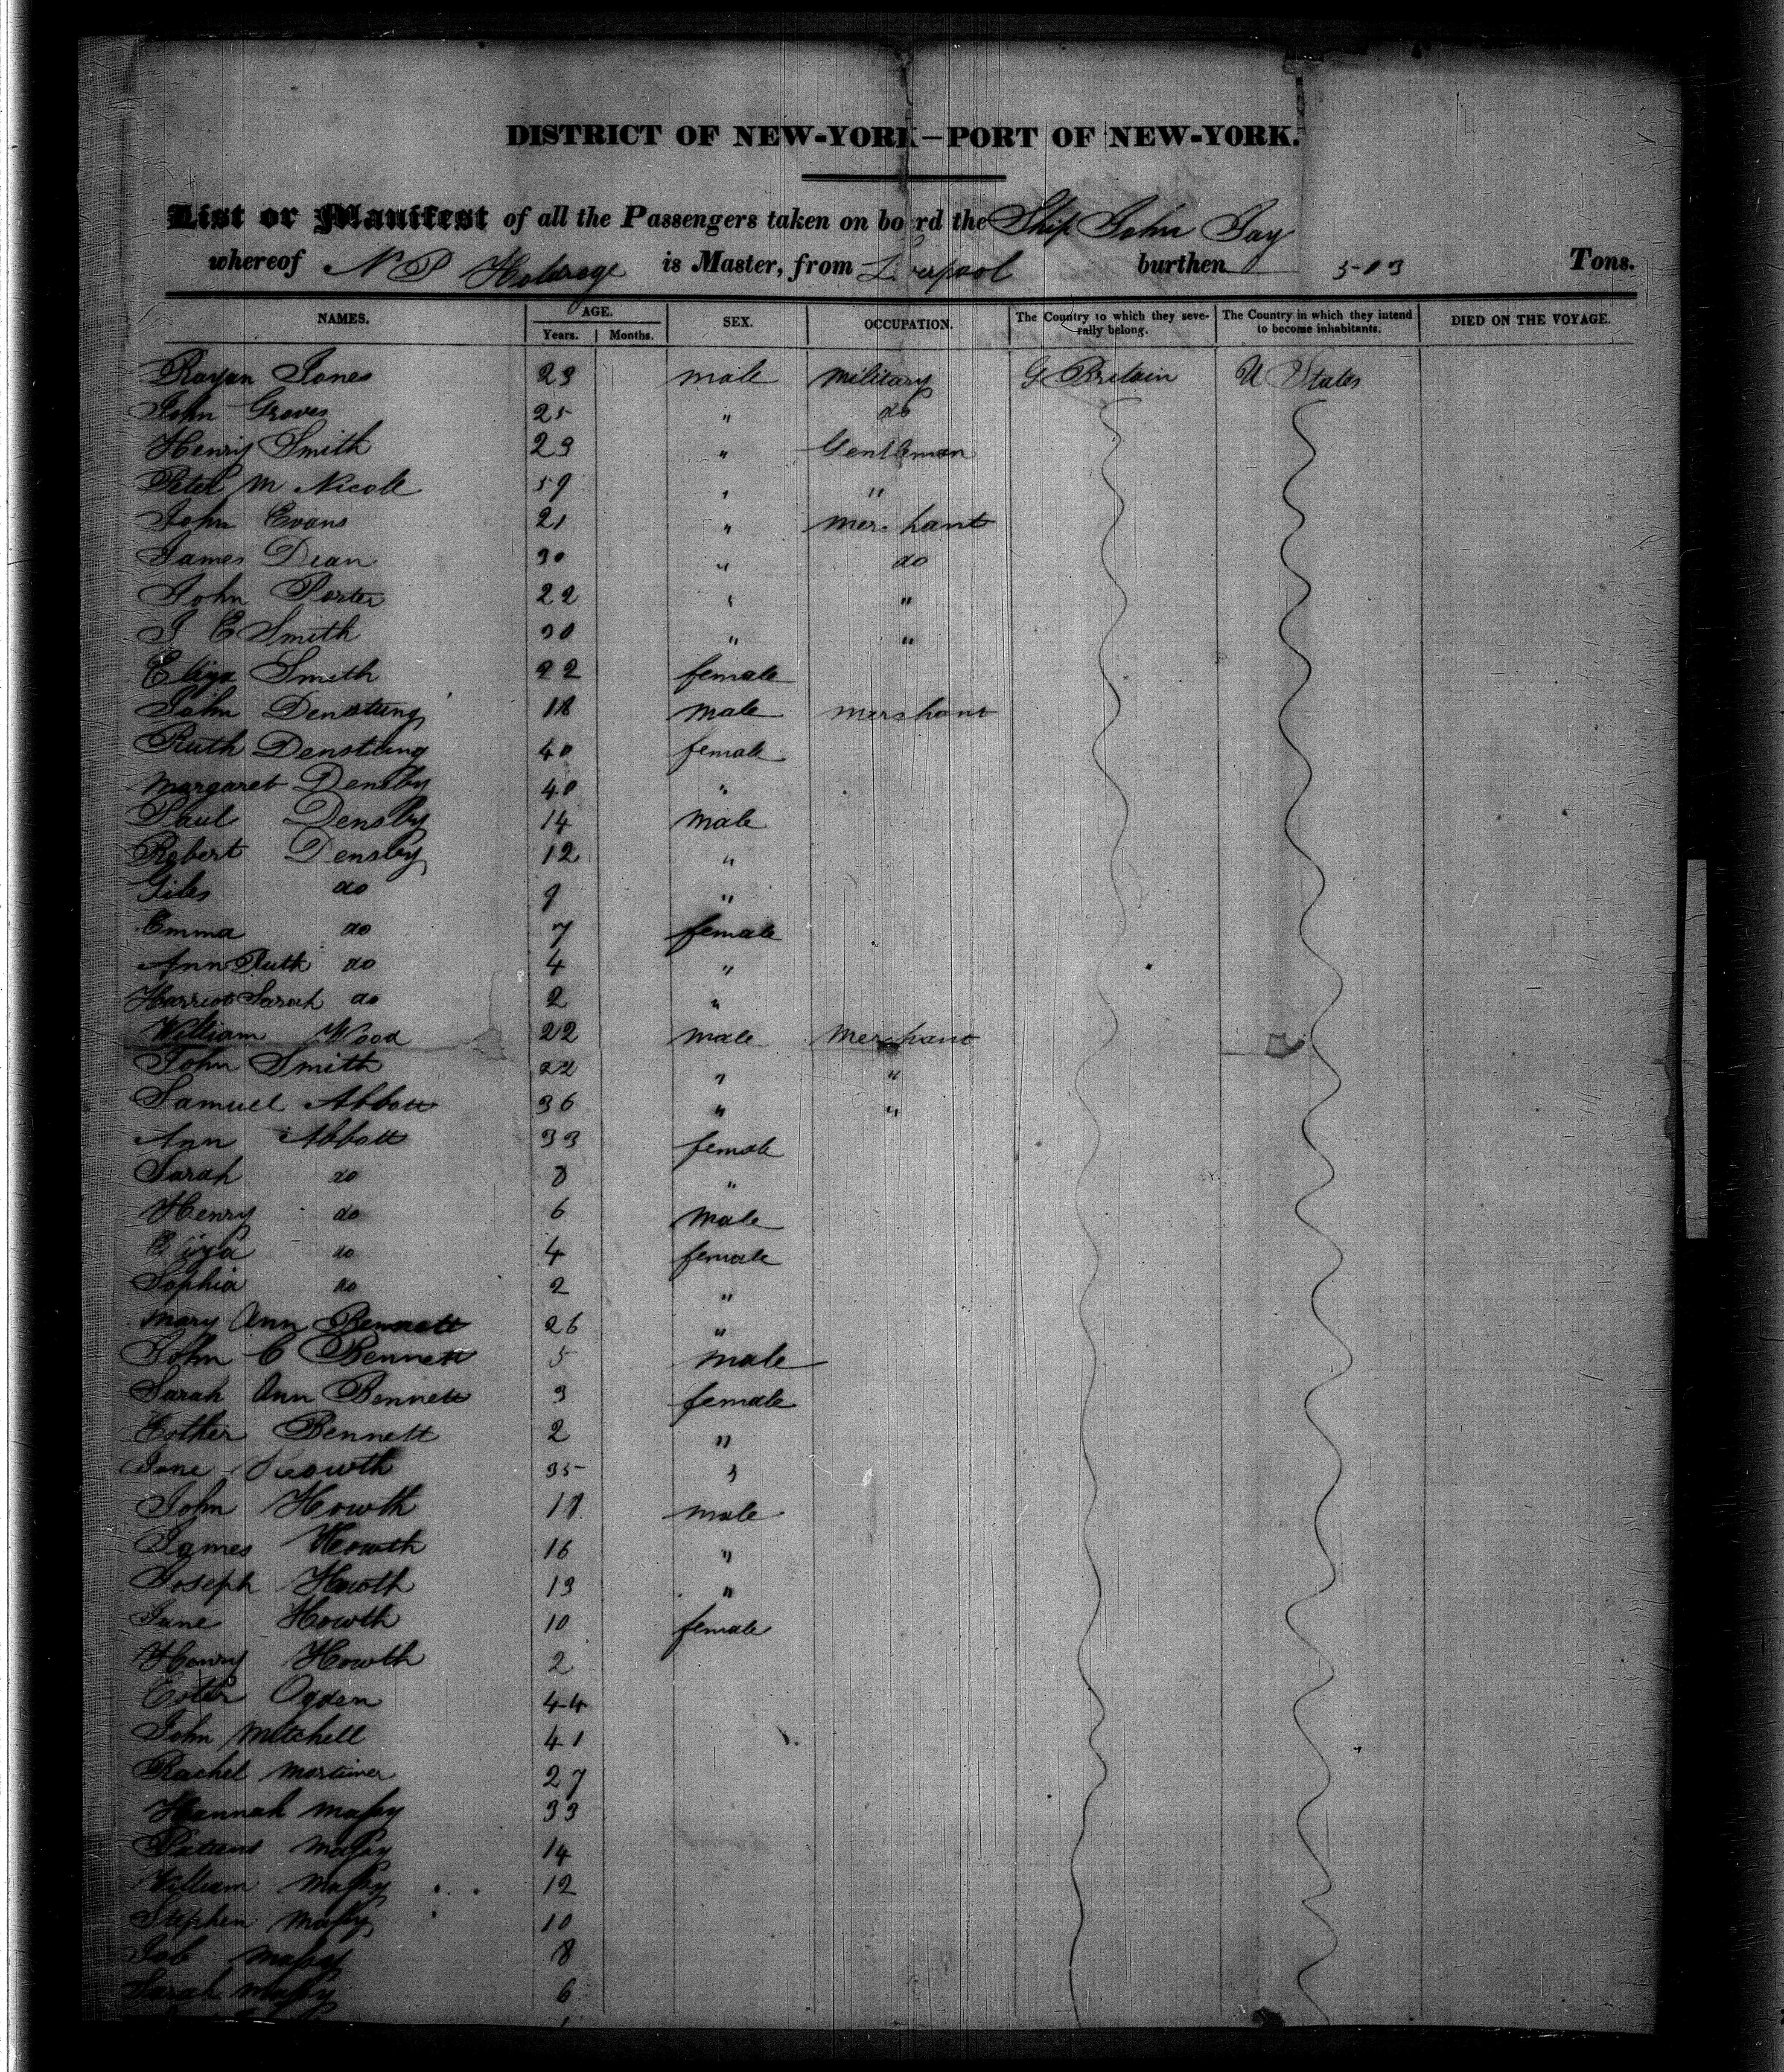 DISTRICT OF NEW-YORK—PORT OF NEW-YORK.
List or Manifest of all the Passengers taken on board the Ship John Jay
whereof N P Holdrege is Master, from Liverpool burthen 503 Tons.
NAMES. AGE. SEX. OCCUPATION. The Country to which they severally belong. The Country in which they intend to become inhabitants. DIED ON THE VOYAGE.
Years. Months.
Jones 23 male Military G Britain U States
John Graves 25 " do
Henry Smith 23 " Gentleman
Peter M Nicole 59 " "
John Evans 21 " merchant
James Dean 30 " do
John Porter 22 " "
J E Smith 30 " "
Eliza Smith 22 female
John Denstung 18 male merchant
Ruth Denstung 40 female
Margaret Densby 40 "
Paul Densby 14 male
Robert Densby 12 "
Giles do 9 "
Emma do 7 female
Ann Ruth do 4 "
Harriot Sarah do 2 "
William Wood 22 male Merchant
John Smith 22 " "
Samuel Abbott 36 " "
Ann Abbott 33 female
Sarah do 8 "
Henry do 6 Male
Eliza do 4 female
Sophia do 2 "
Mary Ann Bennett 26 "
John C Bennett 5 male
Sarah Ann Bennett 3 female
Esther Bennett 2 "
Jane Howth 35 "
John Howth 18 male
James Howth 16 "
Joseph Howth 13 "
Jane Howth 10 female
Henry Howth 2
Ogden 44
John Mitchell 41
Rachel Mortimer 27
Hannah Massy 33
Massy 14
William Massy 12
Stephen Massy 10
Job Massy 8
Sarah Massy 6